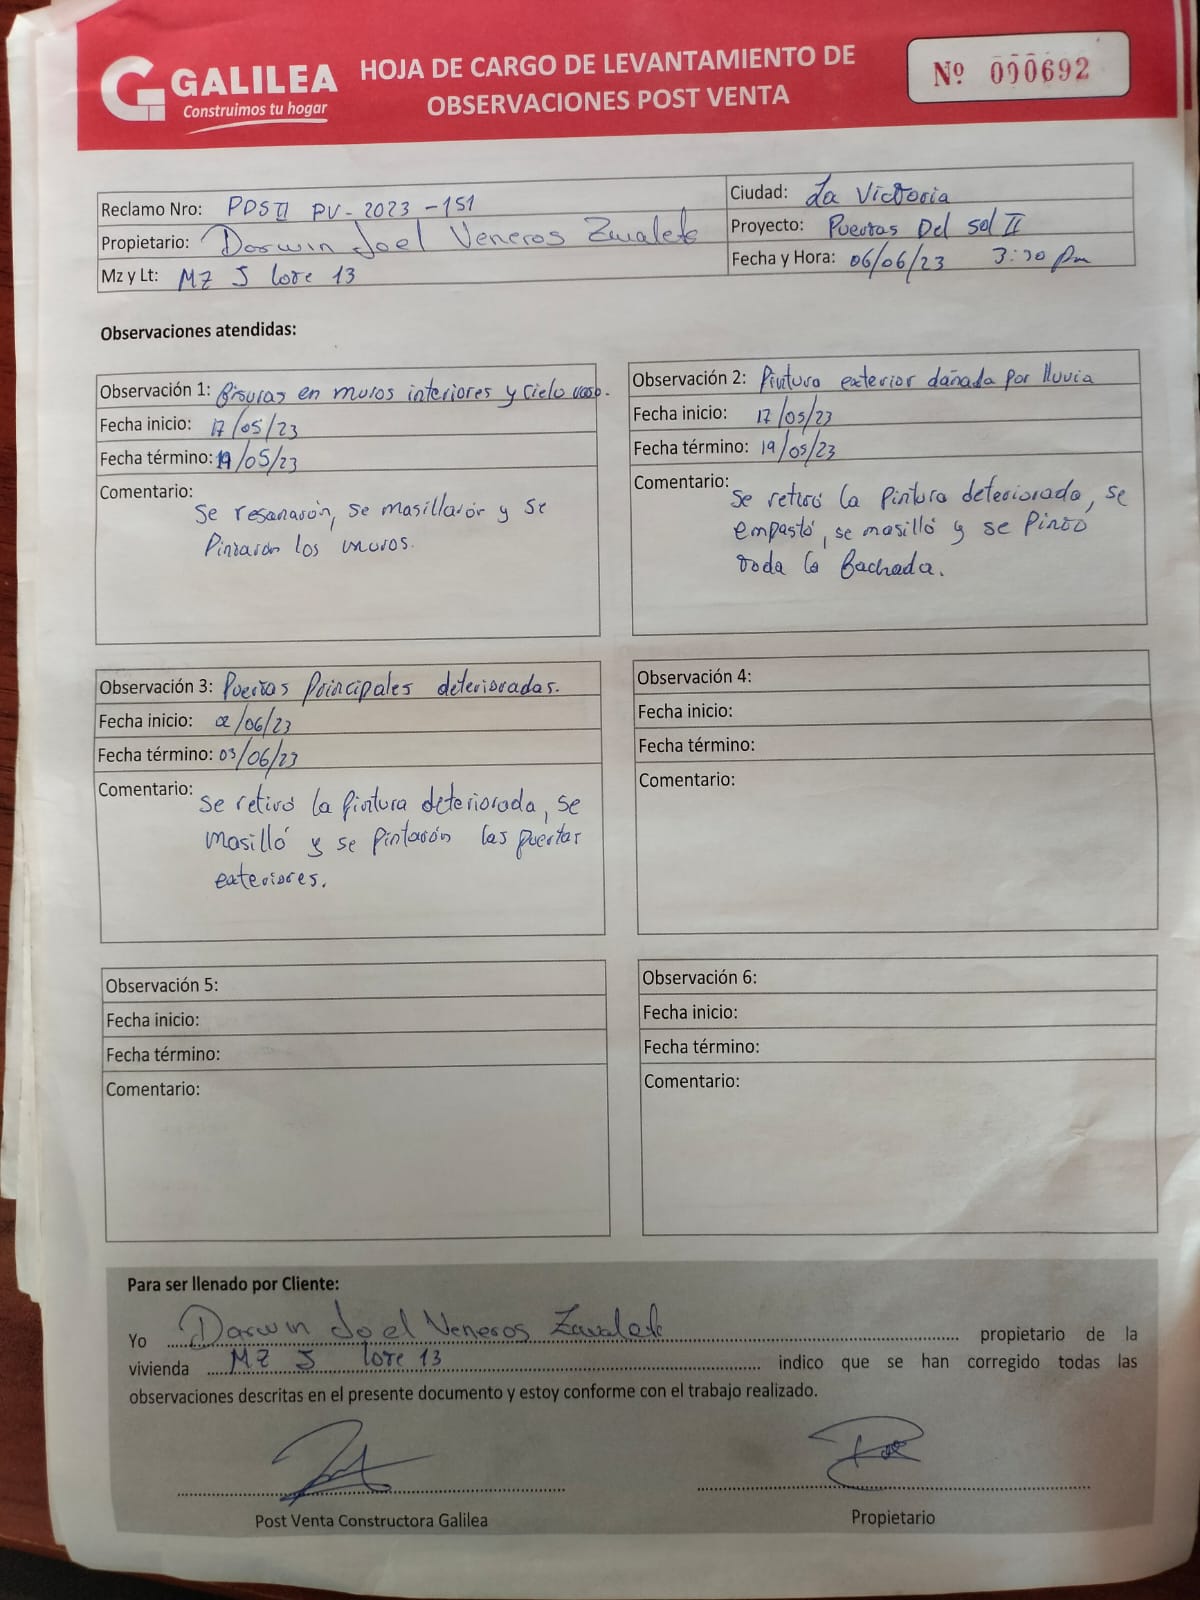 GALILEA
Construimos tu hogar
HOJA DE CARGO DE LEVANTAMIENTO DE
OBSERVACIONES POST VENTA
Nº 000692
Reclamo Nro: PDSII PV-2023-151
Ciudad: La Victoria
Propietario: Darwin Joel Veneros Zavaleta
Proyecto: Puertas Del sol II
Mz y Lt: MZ J lote 13
Fecha y Hora: 06/06/23 3:30 Pm
Observaciones atendidas:
Observación 1: fisuras en muros interiores y cielo raso.
Fecha inicio: 17/05/23
Fecha término: 19/05/23
Comentario: Se resanarón, se masillarón y se
Pintarón los muros.
Observación 2: Pintura exterior dañada por lluvia
Fecha inicio: 17/05/23
Fecha término: 19/05/23
Comentario: Se retiró la pintura deteriorada, se
empastó, se masilló y se Pintó
toda la fachada.
Observación 3: Puertas Principales deterioradas.
Fecha inicio: 02/06/23
Fecha término: 03/06/23
Comentario: Se retiró la pintura deteriorada, se
masilló y se pintarón las puertas
exteriores.
Observación 4:
Fecha inicio:
Fecha término:
Comentario:
Observación 5:
Fecha inicio:
Fecha término:
Comentario:
Observación 6:
Fecha inicio:
Fecha término:
Comentario:
Para ser llenado por Cliente:
Yo Darwin Joel Veneros Zavaleta propietario de la
vivienda MZ J lote 13 indico que se han corregido todas las
observaciones descritas en el presente documento y estoy conforme con el trabajo realizado.
Post Venta Constructora Galilea
Propietario